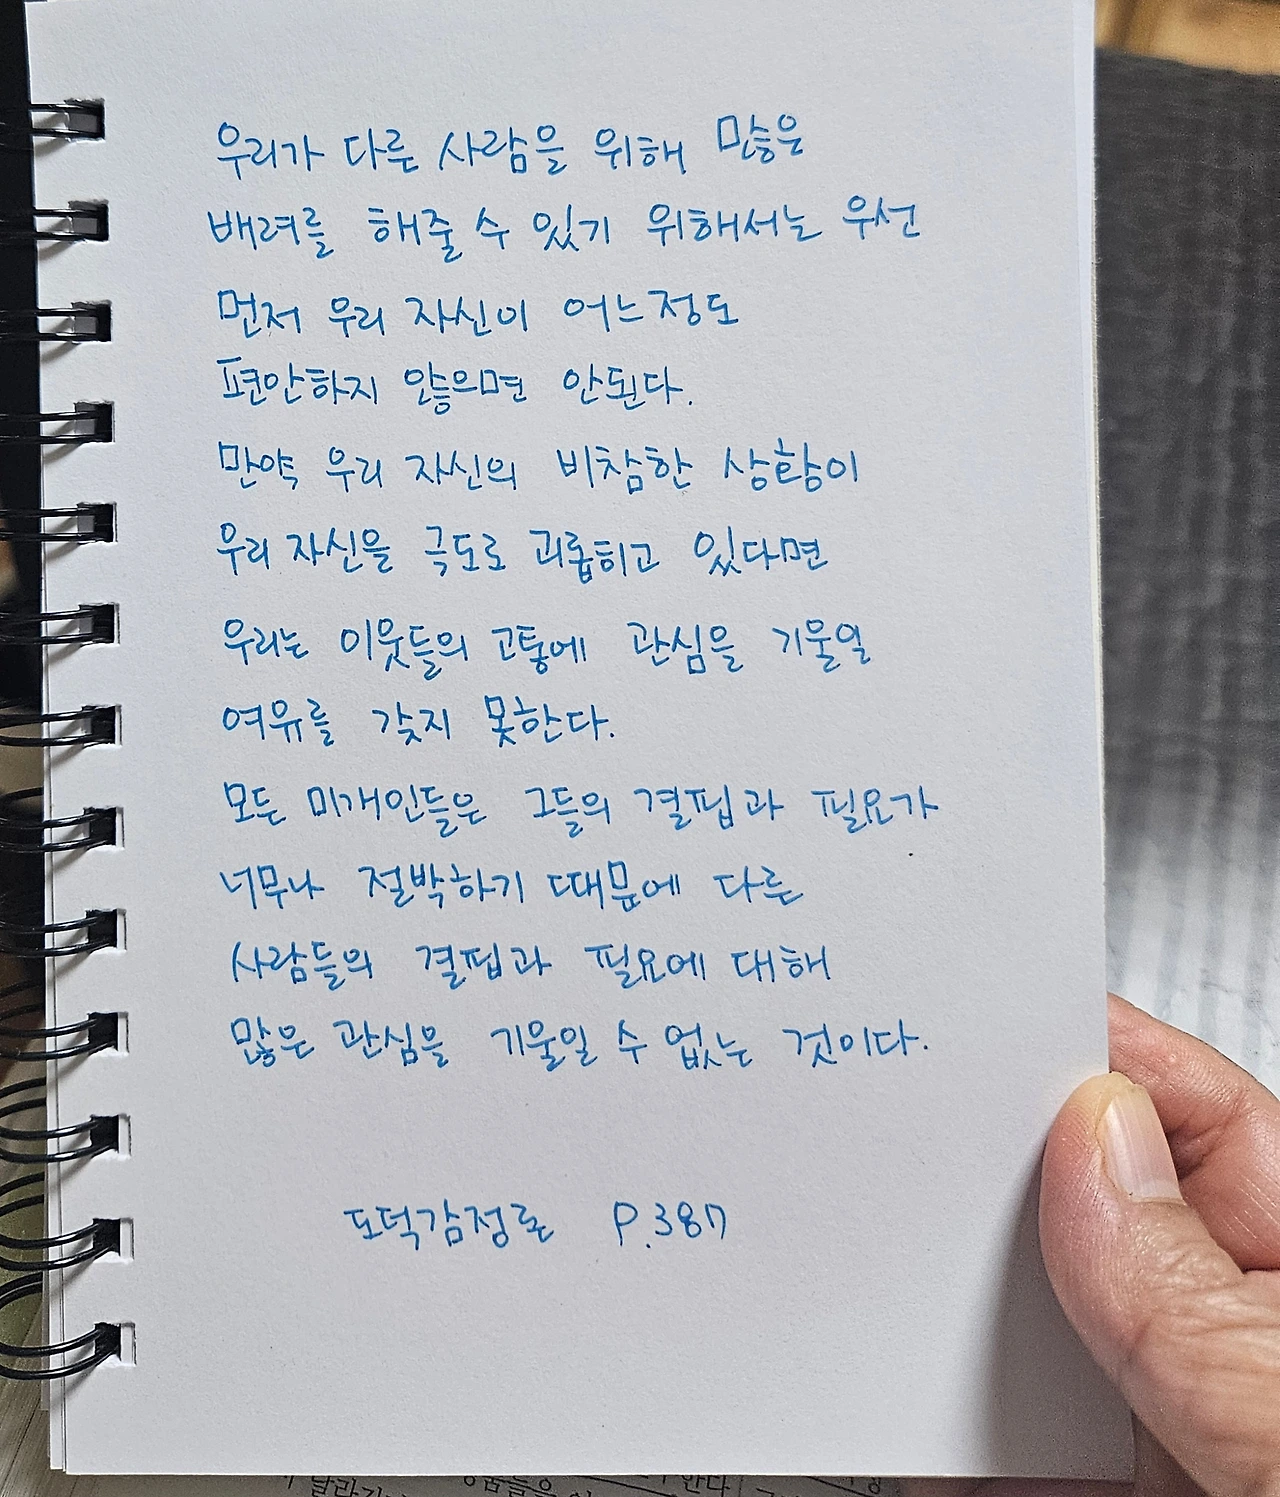 우리가 다른 사람을 위해 많은
배려를 해줄 수 있기 위해서는 우선
먼저 우리 자신이 어느정도
편안하지 않으면 안된다.
만약 우리 자신의 비참한 상황이
우리 자신을 극도로 괴롭히고 있다면
우리는 이웃들의 고통에 관심을 기울일
여유를 갖지 못한다.
모든 미개인들은 그들의 결핍과 필요가
너무나 절박하기 때문에 다른
사람들의 결핍과 필요에 대해
많은 관심을 기울일 수 없는 것이다.
도덕감정론 P.387